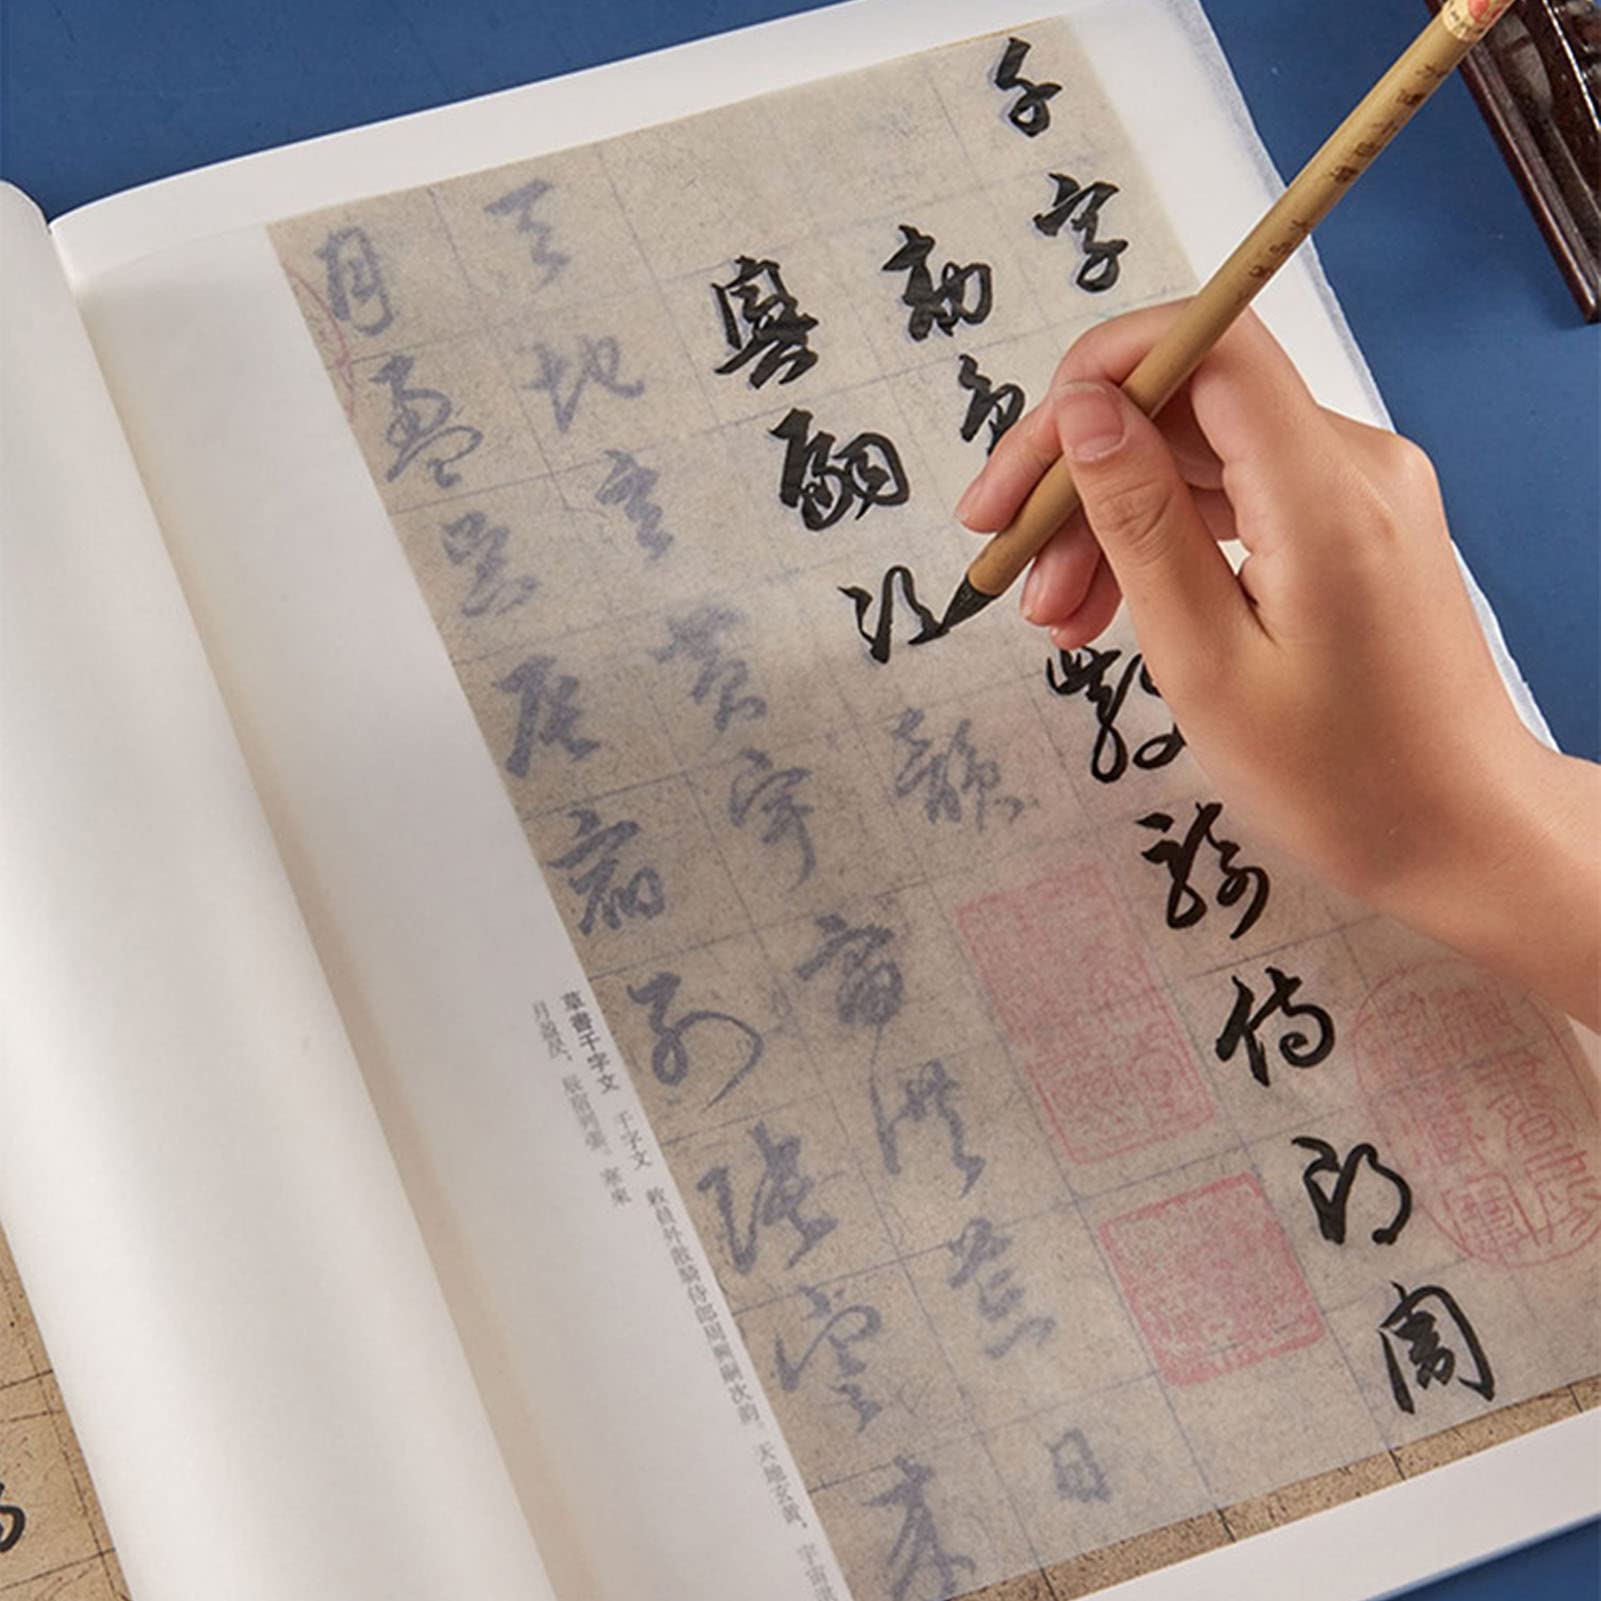 千字
勅員散騎侍郎周
興嗣次韻
天地玄黃宇宙洪荒日
月盈昃辰宿列張寒来
草書千字文 千字文 敕員外散騎侍郎周興嗣次韵。天地玄黄，宇宙
月盈昃，辰宿列張。寒來